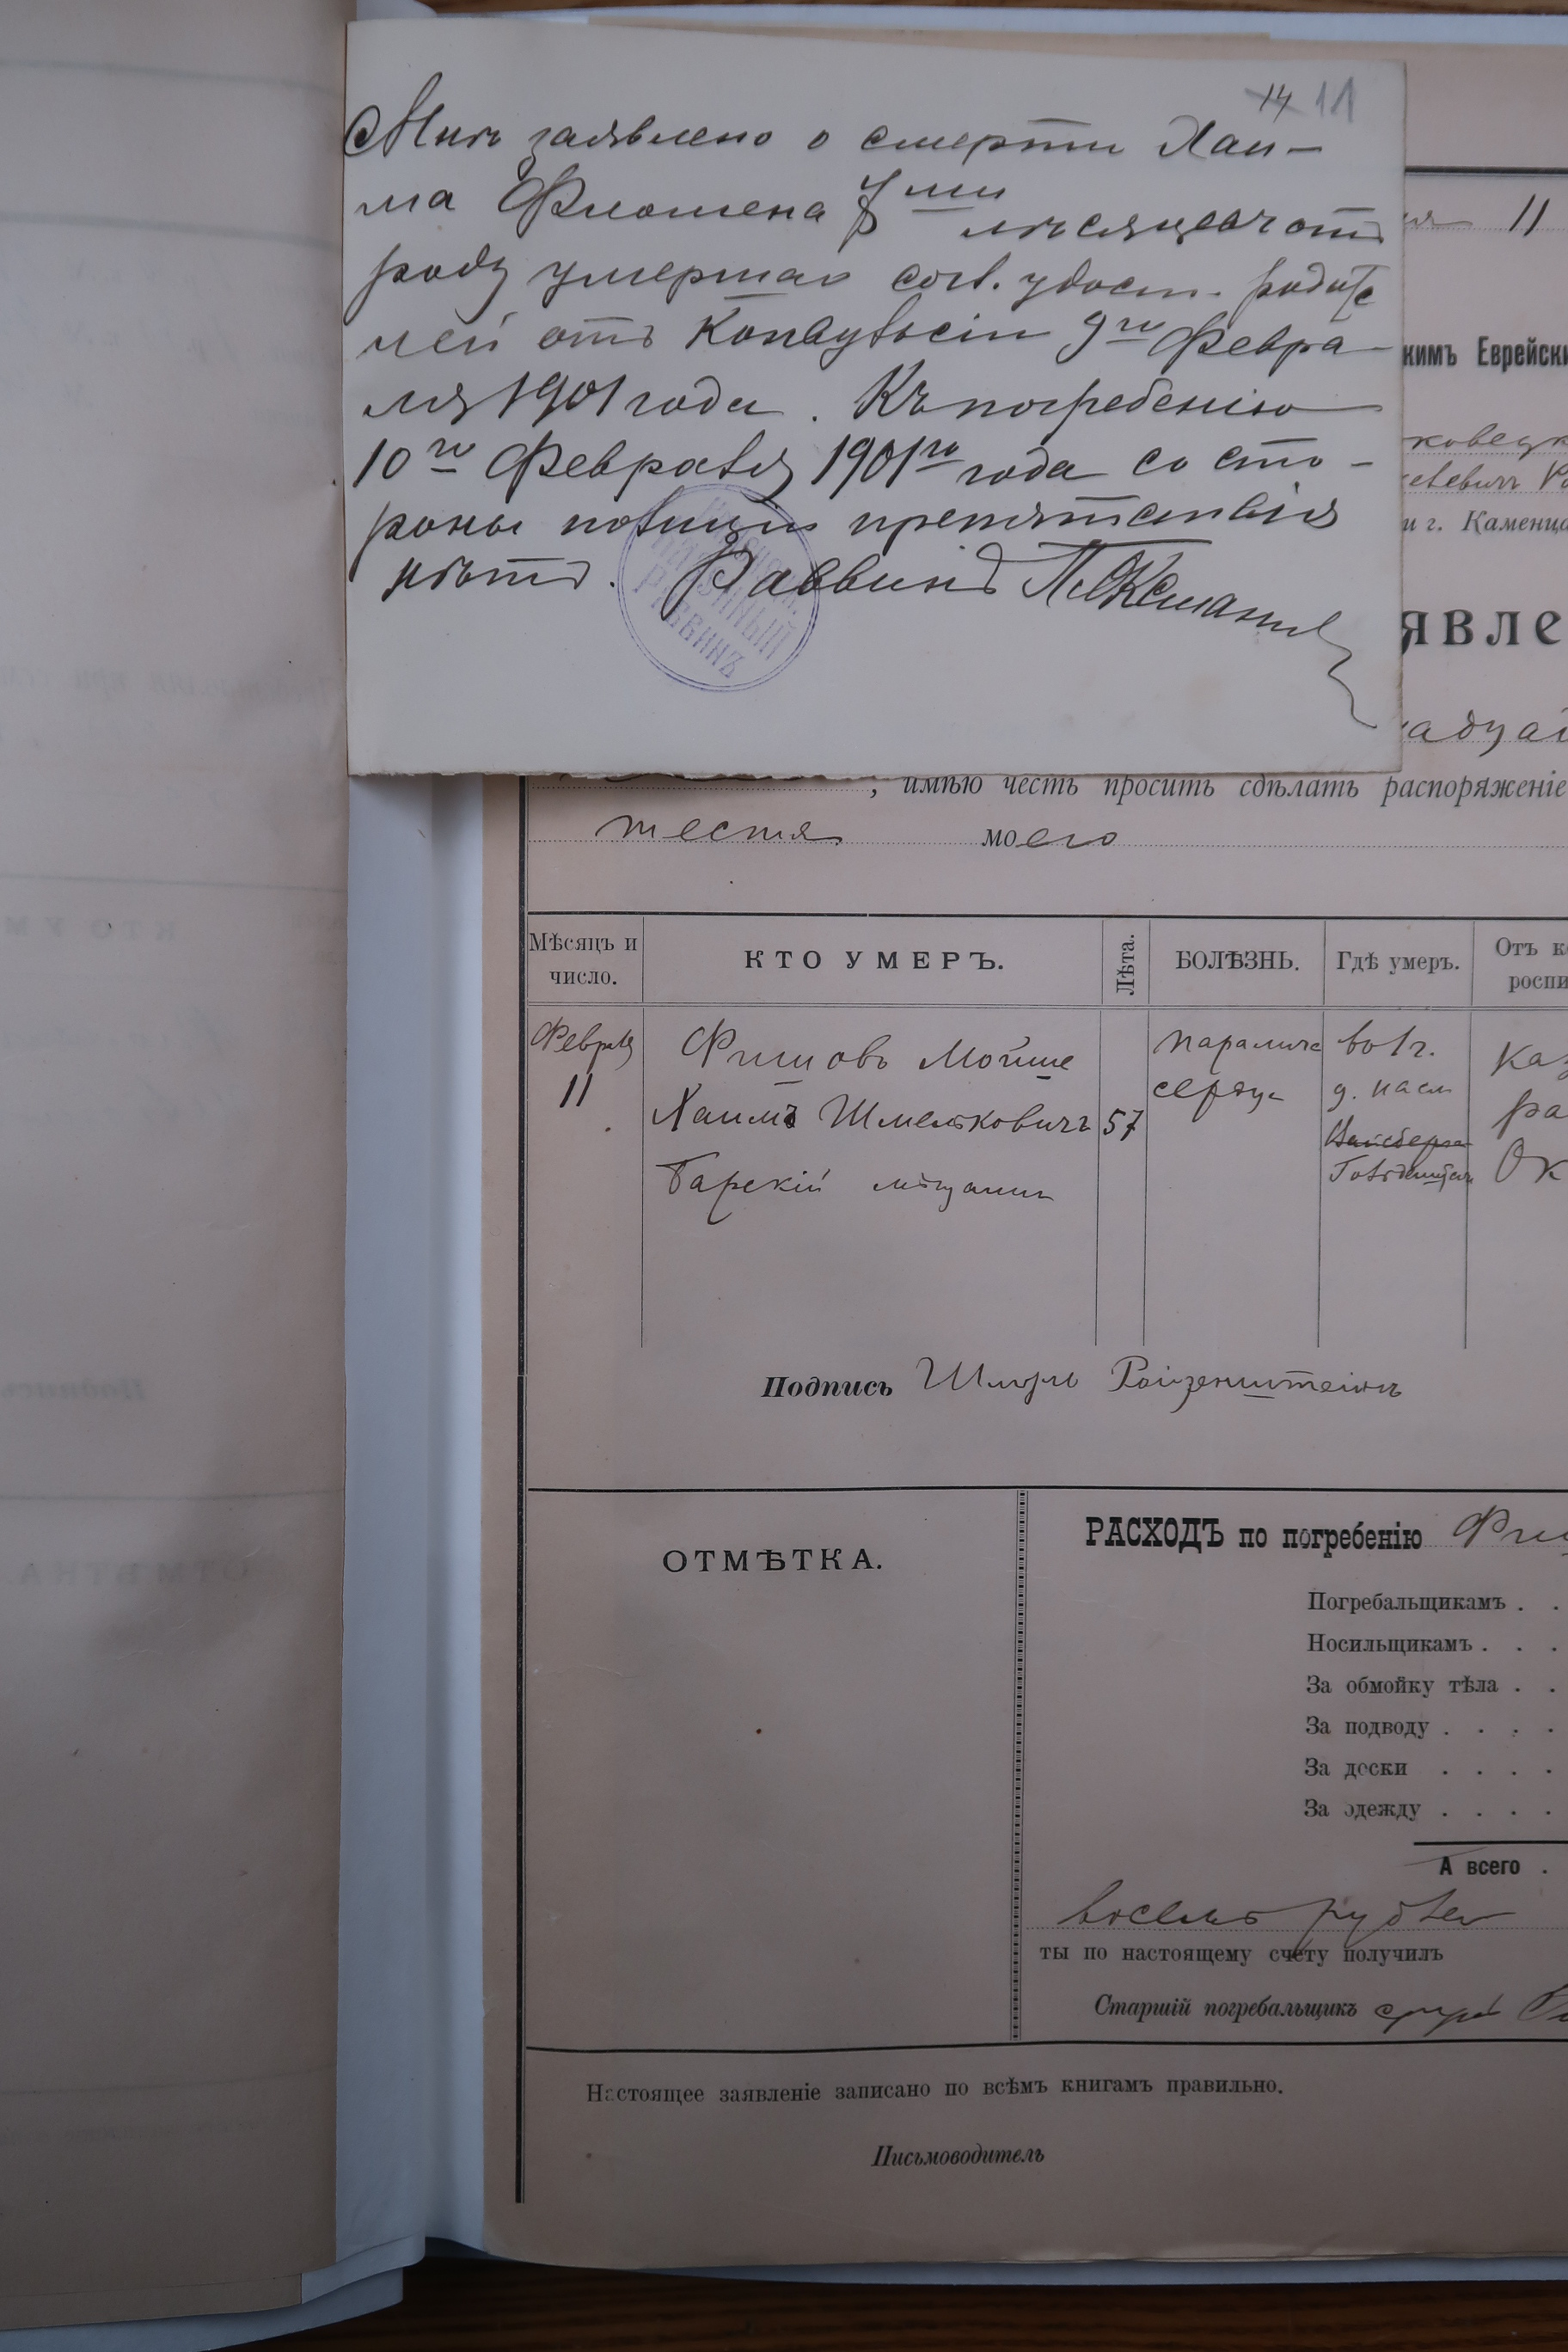 14 11
Мнѣ заявлено о смерти Хаи-
ма Фломена 8ми мѣсяцевъ отъ
роду умершаго согл. удост. родите
лей отъ Конвульсіи 9го Февра
ля 1901 года. Къ погребенію
10го Февраля 1901го года со сто-
роны полиціи препятствія
нѣтъ. Раввинъ
КАЗЕННЫЙ
РАВВИНЪ
11
кимъ Еврейски
и г. Каменца
явле
, имѣю честь просить сдѣлать распоряженіе
тестя моего
Мѣсяцъ и число.
КТО УМЕРЪ.
Лѣта.
БОЛѢЗНЬ.
Гдѣ умеръ.
Отъ к
роспи
Февраля
11
Фишовъ Мойше
Хаимъ Шмельковичъ
Барскій мѣщанинъ
57
Параличъ
сердца
во 1 ч.
д. насл
Вайсберга
Каз
ра
Ок
Подпись Шмуль Ройзенштейнъ
ОТМѢТКА.
РАСХОДЪ по погребенію Фиш
Погребальщикамъ . .
Носильщикамъ . . .
За обмойку тѣла . .
За подводу . . . .
За доски . . . .
За одежду . . . .
А всего .
восемь рублей
ты по настоящему счету получилъ
Старшій погребальщикъ
Настоящее заявленіе записано по всѣмъ книгамъ правильно.
Письмоводитель